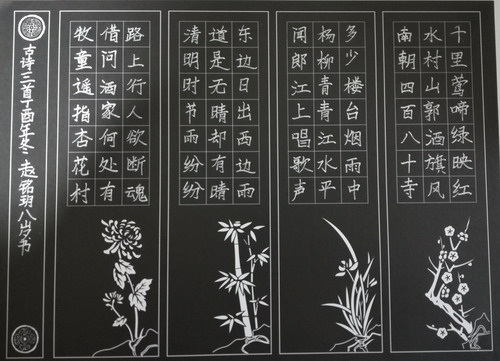 千里莺啼绿映红
水村山郭酒旗风
南朝四百八十寺
多少楼台烟雨中
杨柳青青江水平
闻郎江上唱歌声
东边日出西边雨
道是无晴却有晴
清明时节雨纷纷
路上行人欲断魂
借问酒家何处有
牧童遥指杏花村
古诗三首丁酉年冬 赵铭玥八岁书